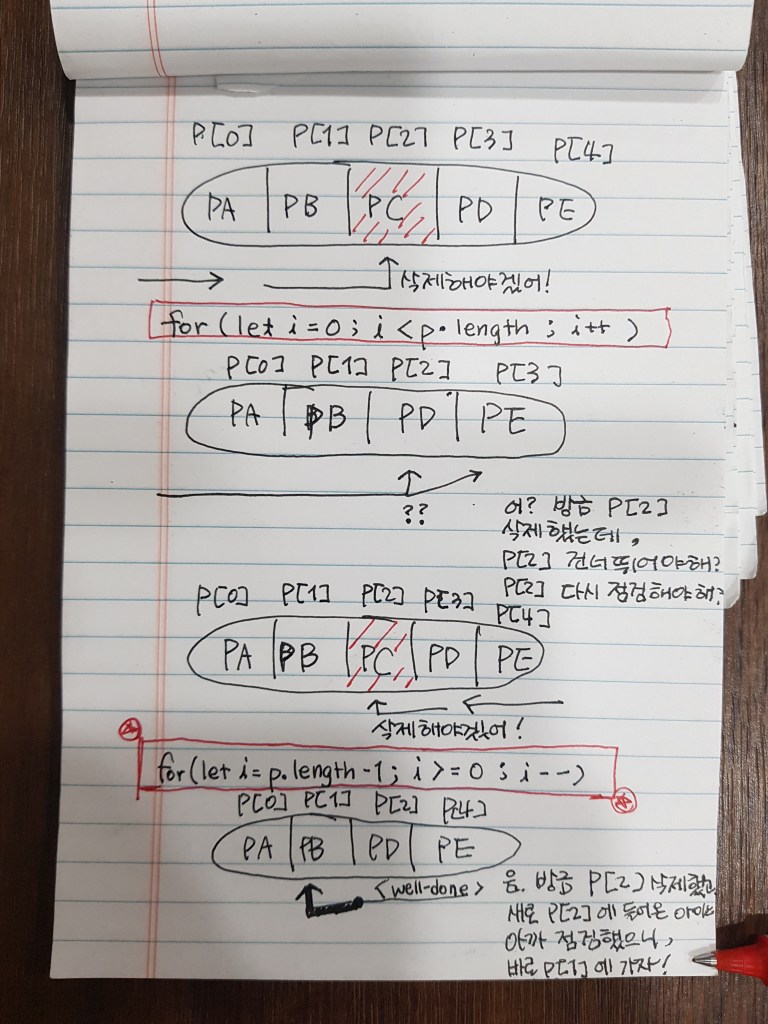 P[0] P[1] P[2] P[3] P[4]
PA PB PC PD PE
삭제해야겠어!
for (let i = 0 ; i < p.length ; i++ )
P[0] P[1] P[2] P[3]
PA PB PD PE
??
어? 방금 P[2]
삭제했는데,
P[2] 건너뛰어야해?
P[2] 다시 점검해야해?
P[0] P[1] P[2] P[3] P[4]
PA PB PC PD PE
삭제해야겠어!
for(let i= p.length-1; i >= 0 ; i--)
P[0] P[1] P[2]
PA PB PD PE
<well-done>
음. 방금 P[2] 삭제했고
새로 P[2]에 들어온 아이는
아까 점검했으니,
바로 P[1]에 가자!